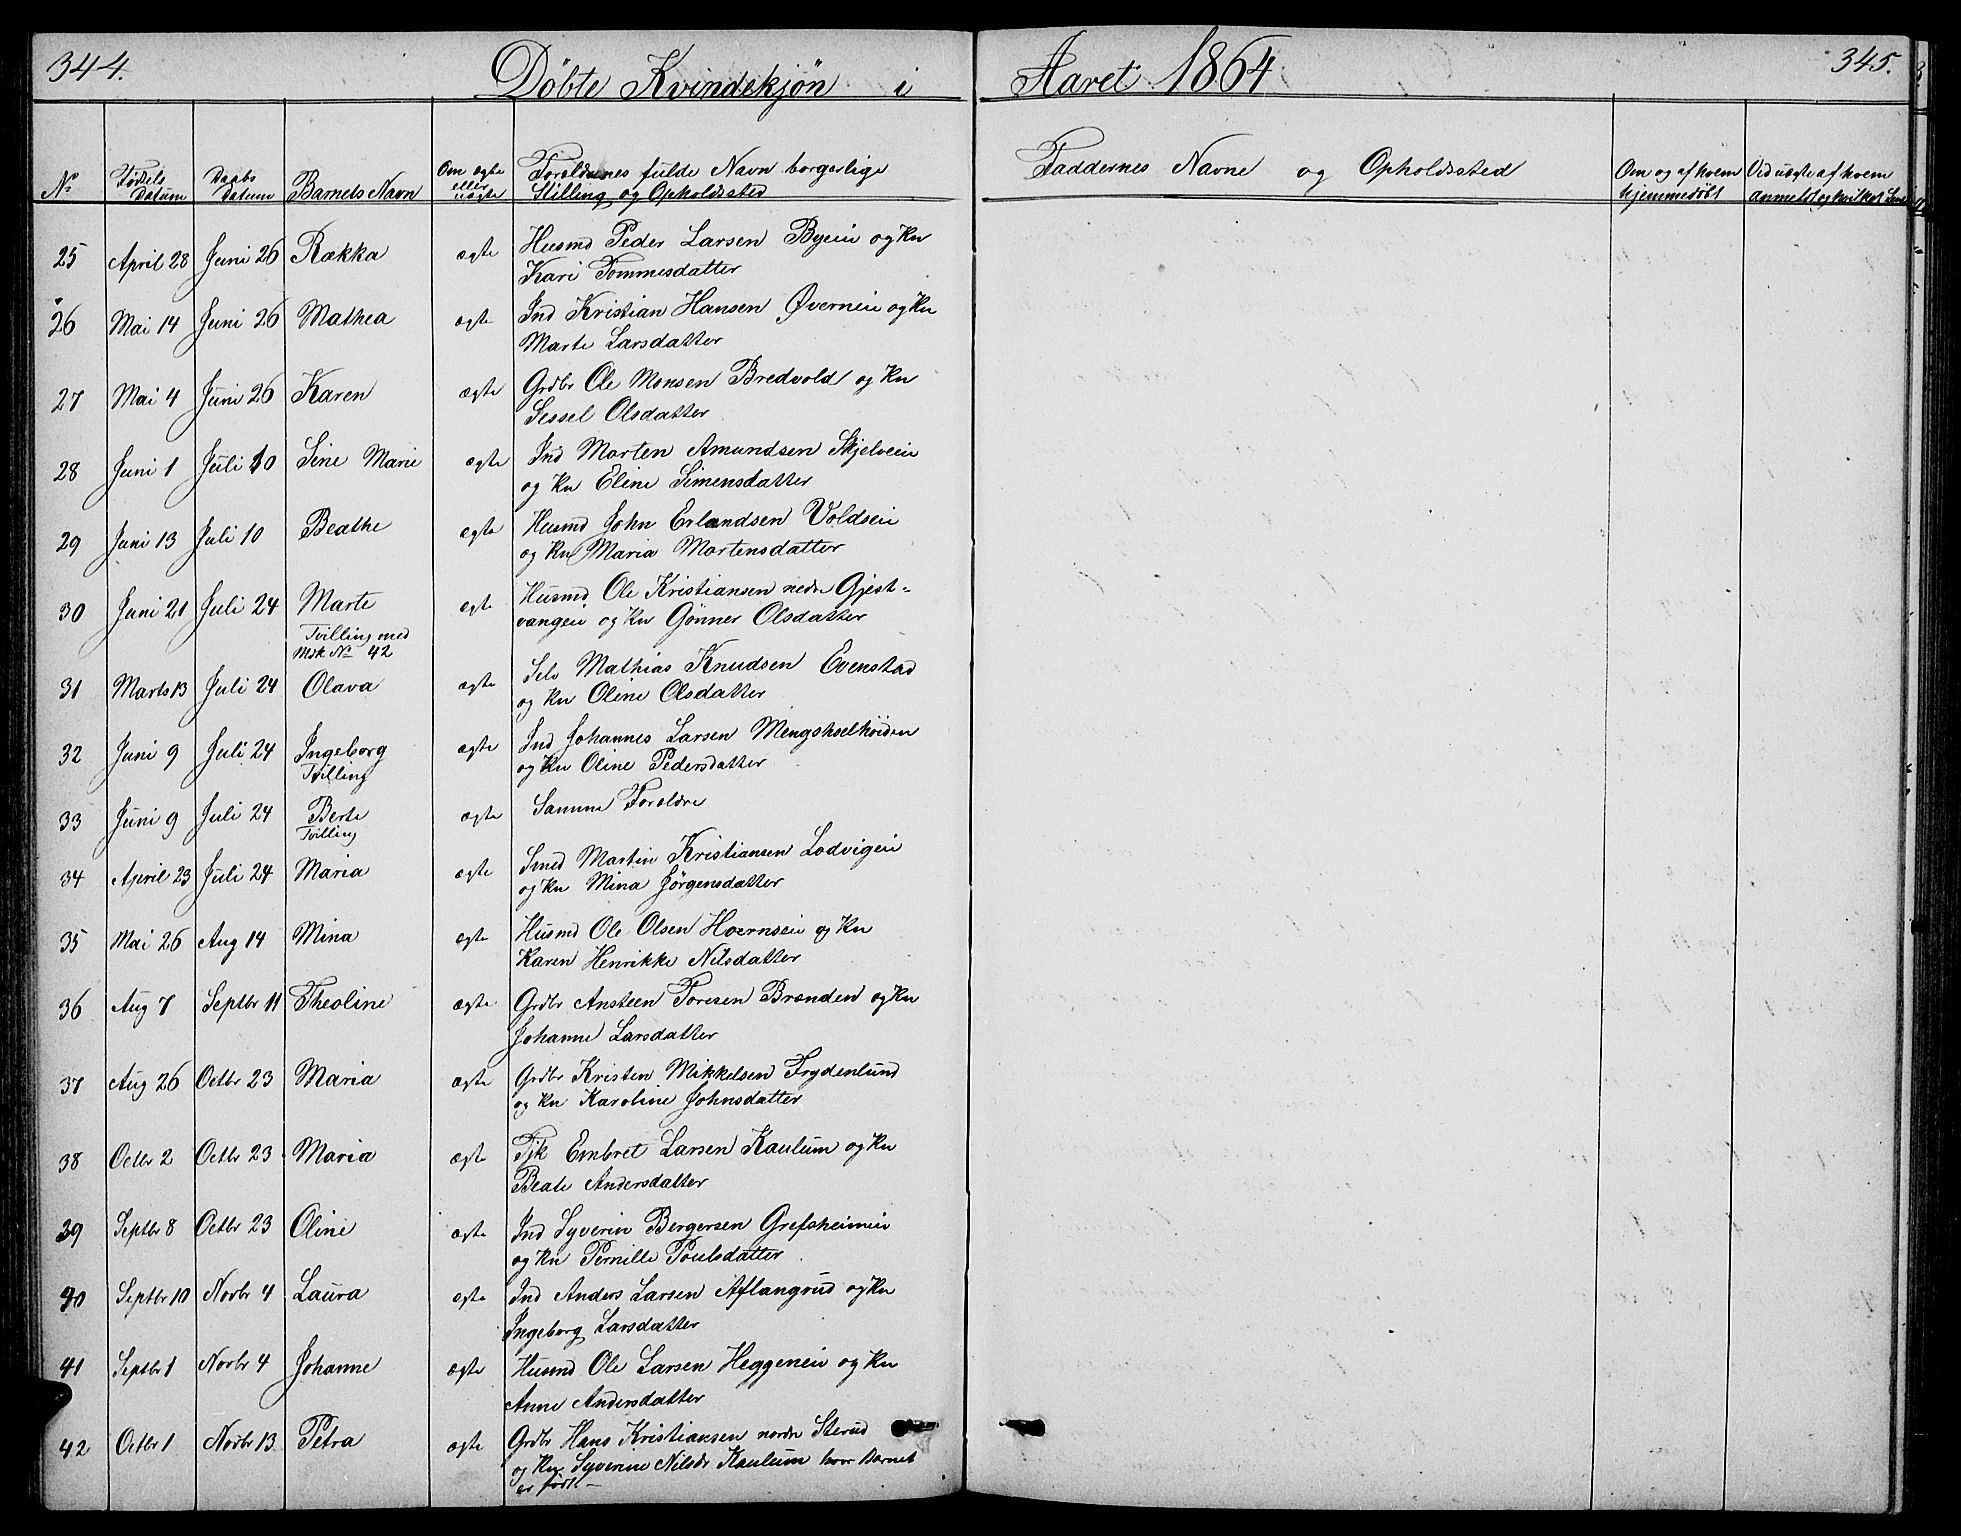 344.
Døbte Kvindekjøn i
Aaret 1864
345.
No
Fødsels Datum
Daabs Datum
Barnets Navn
Om ægte eller uægte
Forældrenes fulde Navn borgerlige
Stilling og Opholdssted
Faddernes Navne og Opholdssted
Om og af hvem
hjemmedøbt
Ved uægte af hvem
anmeldt og hvilket
25 April 28 Juni 26 Rækka ægte Husmd Peder Larsen Byeie og Kn
Kari Tommesdatter
26 Mai 14 Juni 26 Mathea ægte Ind Kristian Hansen Øverneie og Kn
Marte Larsdatter
27 Mai 4 Juni 26 Karen ægte Grdbr Ole Monsen Bredvold og Kn
Sessel Olsdatter
28 Juni 1 Juli 10 Sine Marie ægte Ind Morten Amundsen Skjelveie
og Kn Eline Simensdatter
29 Juni 13 Juli 10 Beathe ægte Husmd John Erlandsen Voldseie
og Kn Maria Mortensdatter
30 Juni 21 Juli 24 Marte ægte Husmd Ole Kristiansen nedre Gjest-
vangeie og Kn Gønner Olsdatter
Tvilling med
Msk No 42
31 Marts 13 Juli 24 Olava ægte Selv Mathias Knudsen Evenstad
og Kn Oline Olsdatter
32 Juni 9 Juli 24 Ingeborg ægte Ind Johannes Larsen Mengshoelhøiden
Tvilling og Kn Oline Pedersdatter
33 Juni 9 Juli 24 Berte ægte Samme Forældre
Tvilling
34 April 23 Juli 24 Maria ægte Smed Martin Kristiansen Lodvigeie
og Kn Mina Jørgensdatter
35 Mai 26 Aug 14 Mina ægte Husmd Ole Olsen Hoernseie og Kn
Karen Henrikke Nilsdatter
36 Aug 7 Septbr 11 Theoline ægte Grdbr Ansteen Toresen Brænden og Kn
Johanne Larsdatter
37 Aug 26 Octbr 23 Maria ægte Grdbr Kristen Mikkelsen Frydenlund
og Kn Karoline Johnsdatter
38 Octbr 2 Octbr 23 Maria ægte Tjk Embret Larsen Kaulum og Kn
Beate Andersdatter
39 Septbr 8 Octbr 23 Oline ægte Ind Syverin Bergersen Grefsheimeie
og Kn Pernille Poulsdatter
40 Septbr 10 Novbr 4 Laura ægte Ind Anders Larsen Aflangrud og Kn
Ingeborg Larsdatter
41 Septbr 1 Novbr 4 Johanne ægte Husmd Ole Larsen Heggeneie og Kn
Anne Andersdatter
42 Octbr 1 Novbr 13 Petra ægte Grdbr Hans Kristiansen nordre Sterud
og Kn Syverine Nilsdr Kaulum hvor Barnet
er født—